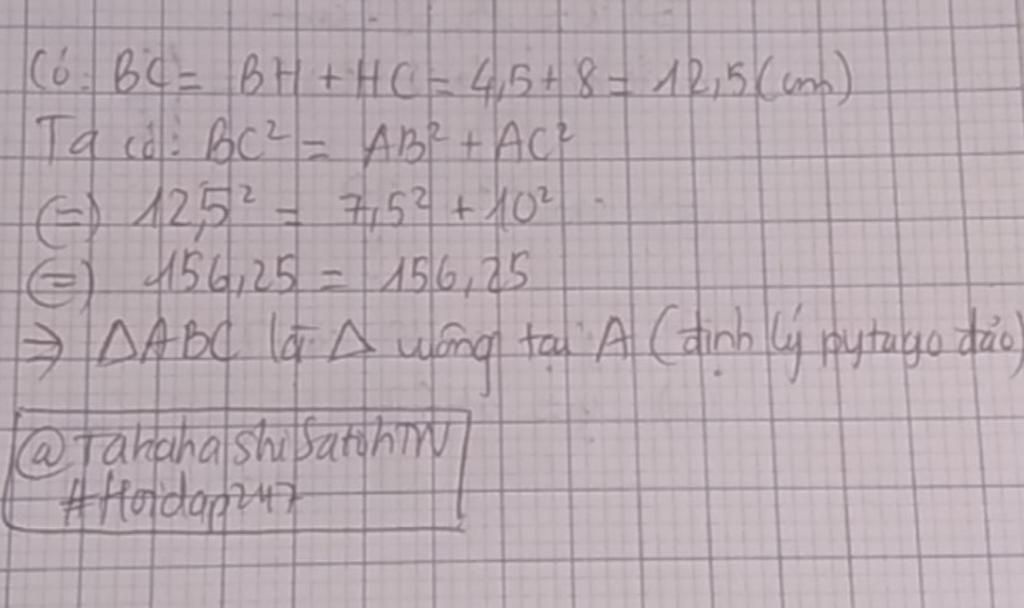 Có: BC = BH + HC = 4,5 + 8 = 12,5 (cm)
Ta có: BC² = AB² + AC²
(=) 12,5² = 7,5² + 10²
(=) 156,25 = 156,25
⇒ ΔABC là Δ vuông tại A (định lý pytago đảo)
@TahahashiSatohTW
#Hoidap247